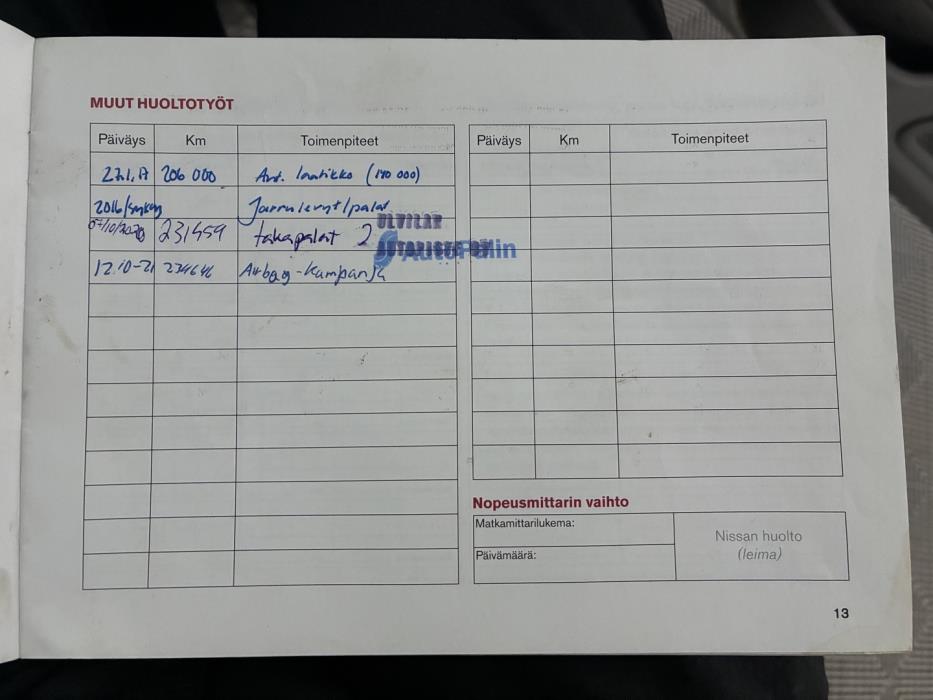 MUUT HUOLTOTYÖT
Päiväys Km Toimenpiteet
27.1.17 206 000 Aut. laatikko (140 000)
2016/syksy Jarrulevyt/palat
07/10/2020 231459 takapalat 2
ULVILAN
AUTOLISTE OY
AutoPalin
12.10-21 234646 Airbag-kampanja
Päiväys Km Toimenpiteet
Nopeusmittarin vaihto
Matkamittarilukema:
Päivämäärä:
Nissan huolto
(leima)
13